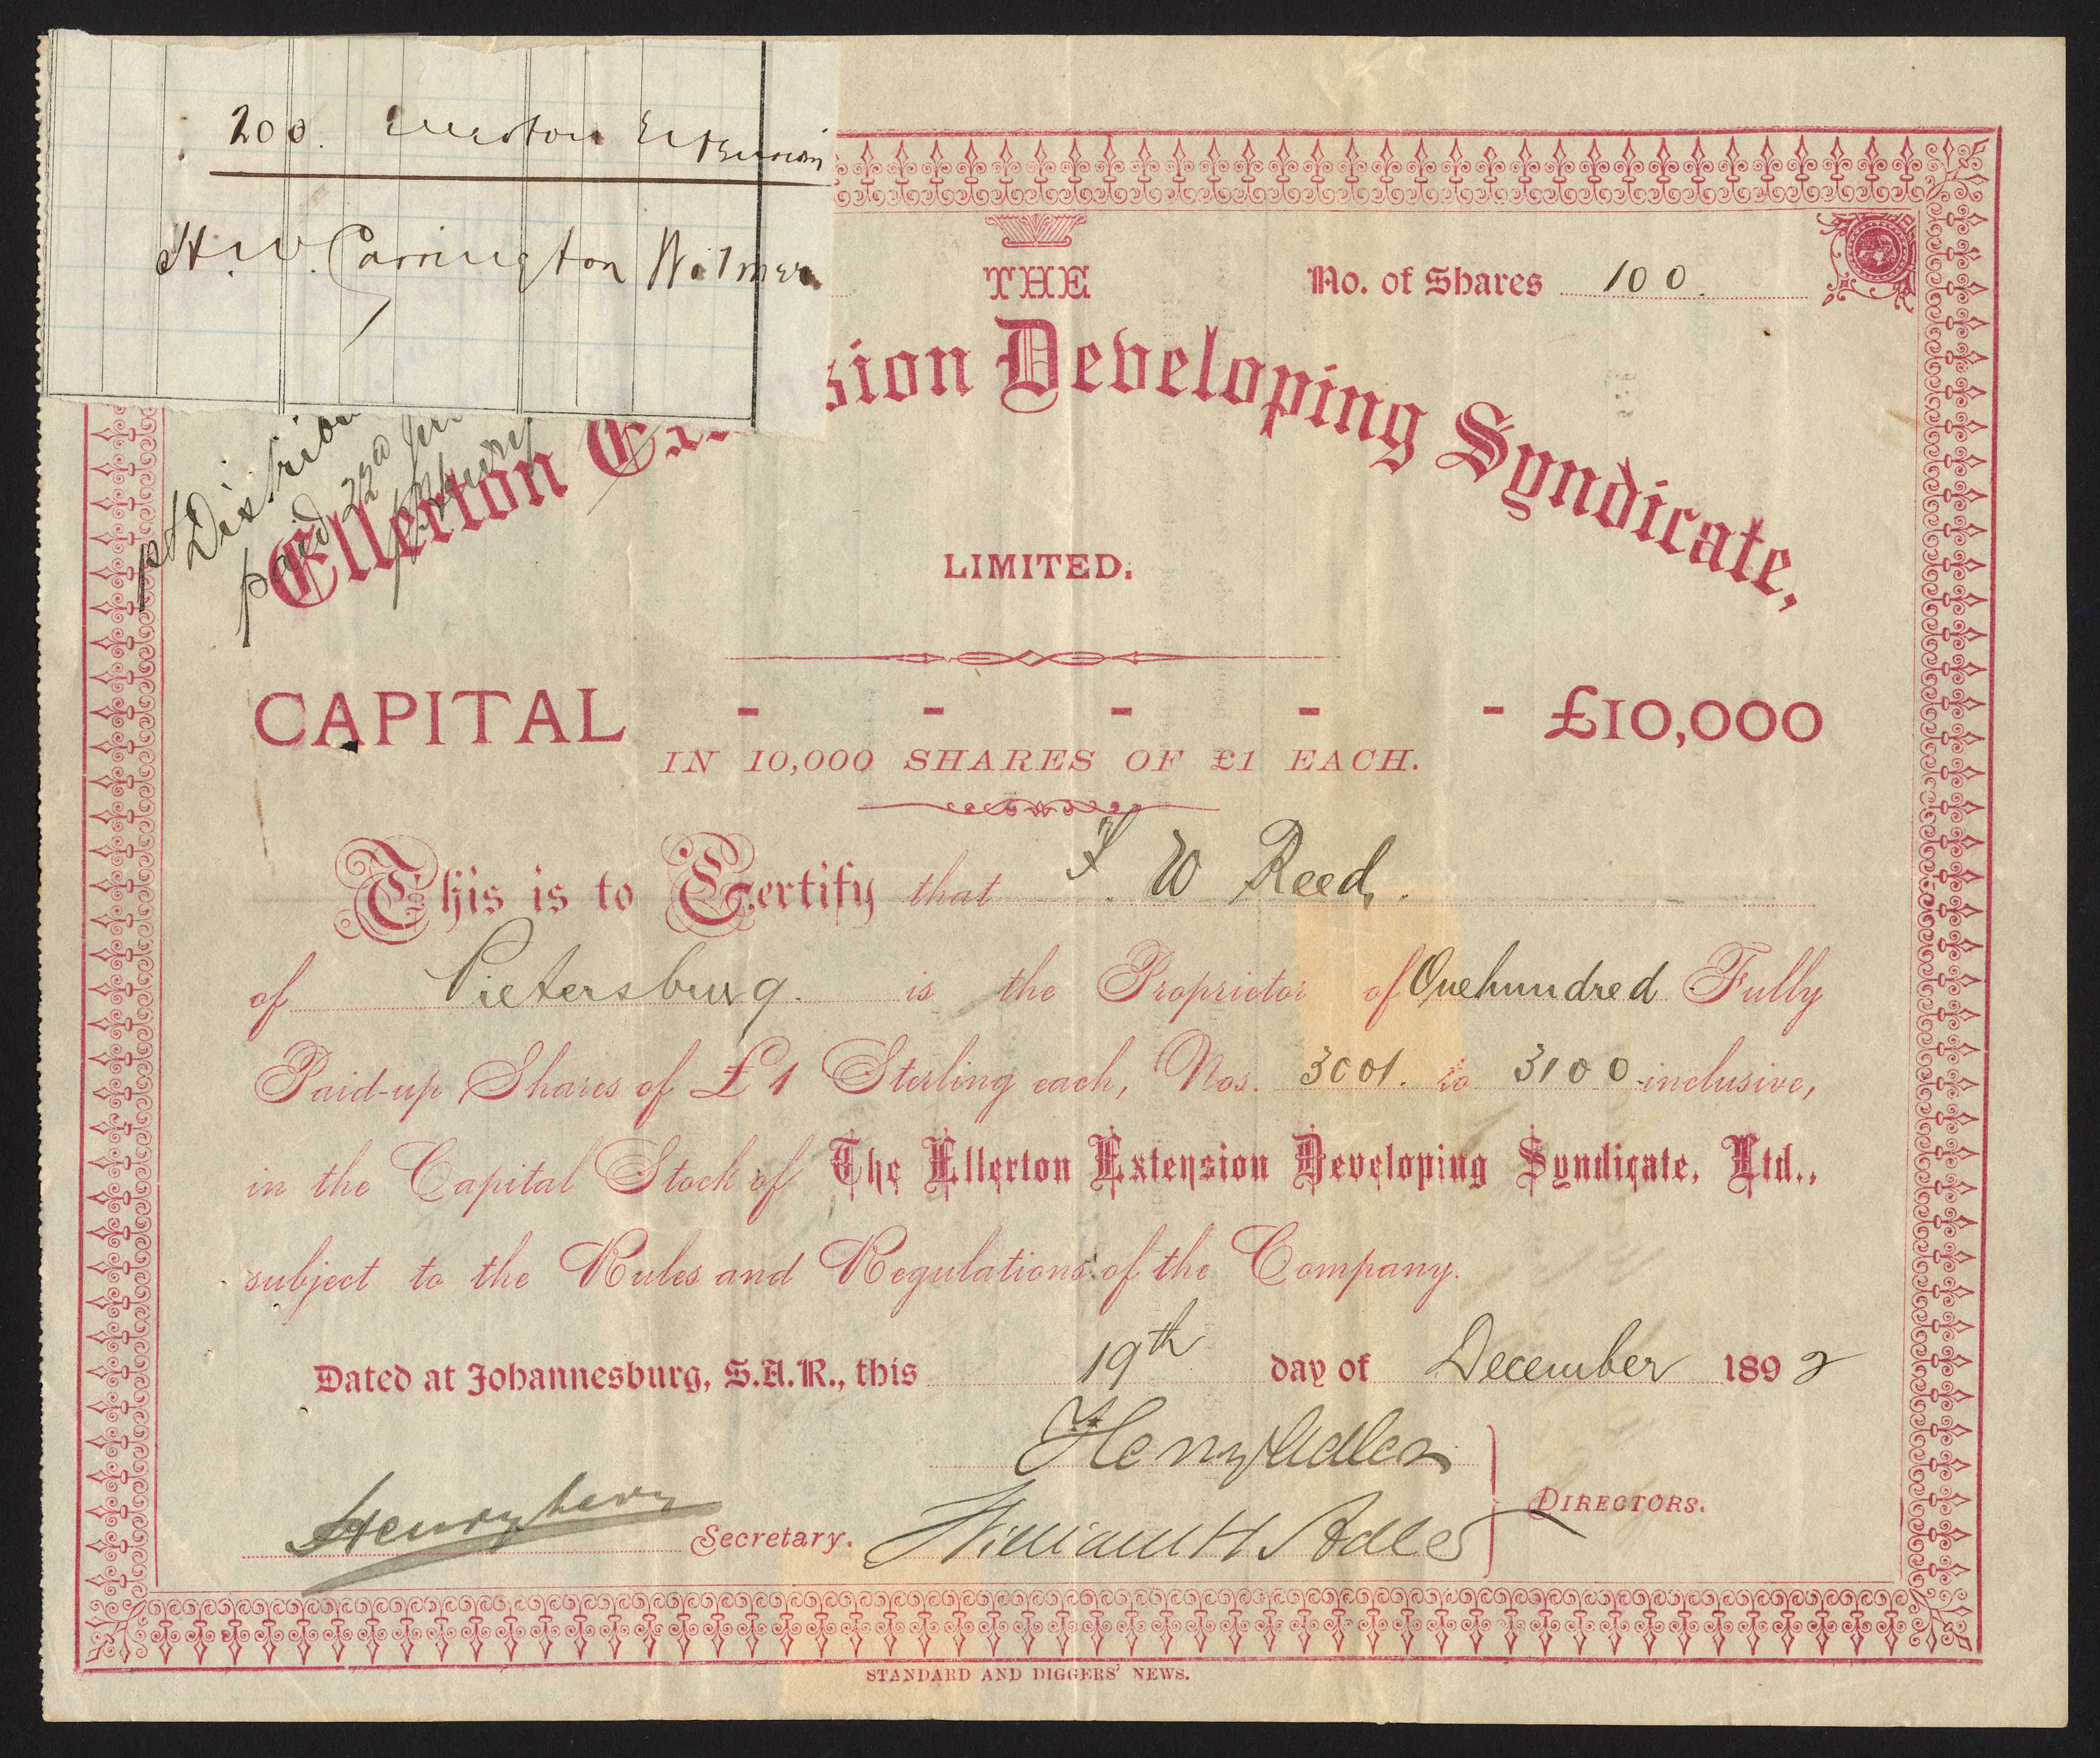 200. Ellerton Extension
H. W. Carrington Wilmer
THE
No. of Shares 100.
Ellerton Ex sion Developing Syndicate,
LIMITED.
1st Distribu
paid 22d
CAPITAL - - - - - £10,000
IN 10,000 SHARES OF £1 EACH.
This is to Certify that F W Reed.
of Pietersburg. is the Proprietor of Onehundred Fully
Paid-up Shares of £1 Sterling each, Nos. 3001. to 3100 inclusive,
in the Capital Stock of The Ellerton Extension Developing Syndicate, Ltd.,
subject to the Rules and Regulations of the Company.
Dated at Johannesburg, S.A.R., this 19th day of December 1892
Henry Adler
Henry Levy Secretary. William H Adler DIRECTORS.
STANDARD AND DIGGERS' NEWS.